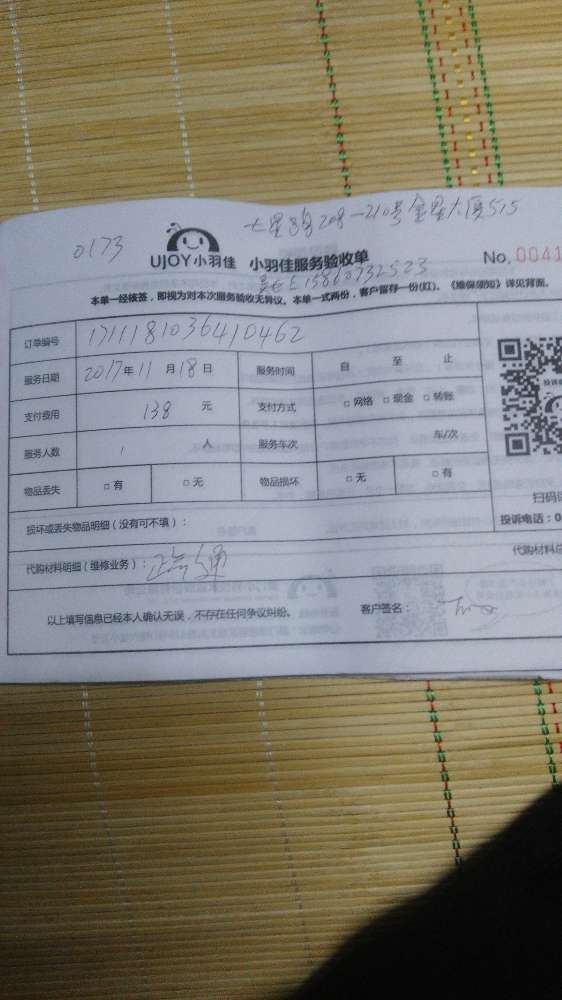 七星路208-210号金星大厦515
0173
UJOY小羽佳 小羽佳服务验收单 No. 0041
13860732523
本单一经核签，即视为对本次服务验收无异议。本单一式两份，客户留存一份(红)。《维保须知》详见背面。
订单编号 1711181036410462
服务日期 2017年11月18日 服务时间 自 至 止
支付费用 138 元 支付方式 □网络 □现金 □转账
服务人数 1 人 服务车次 车/次
物品丢失 □有 □无 物品损坏 □无 □有
扫码
损坏或丢失物品明细（没有可不填）：
投诉电话：0
代购材料明细（维修业务）： 代购材料总
以上填写信息已经本人确认无误，不存在任何争议纠纷。 客户签名：